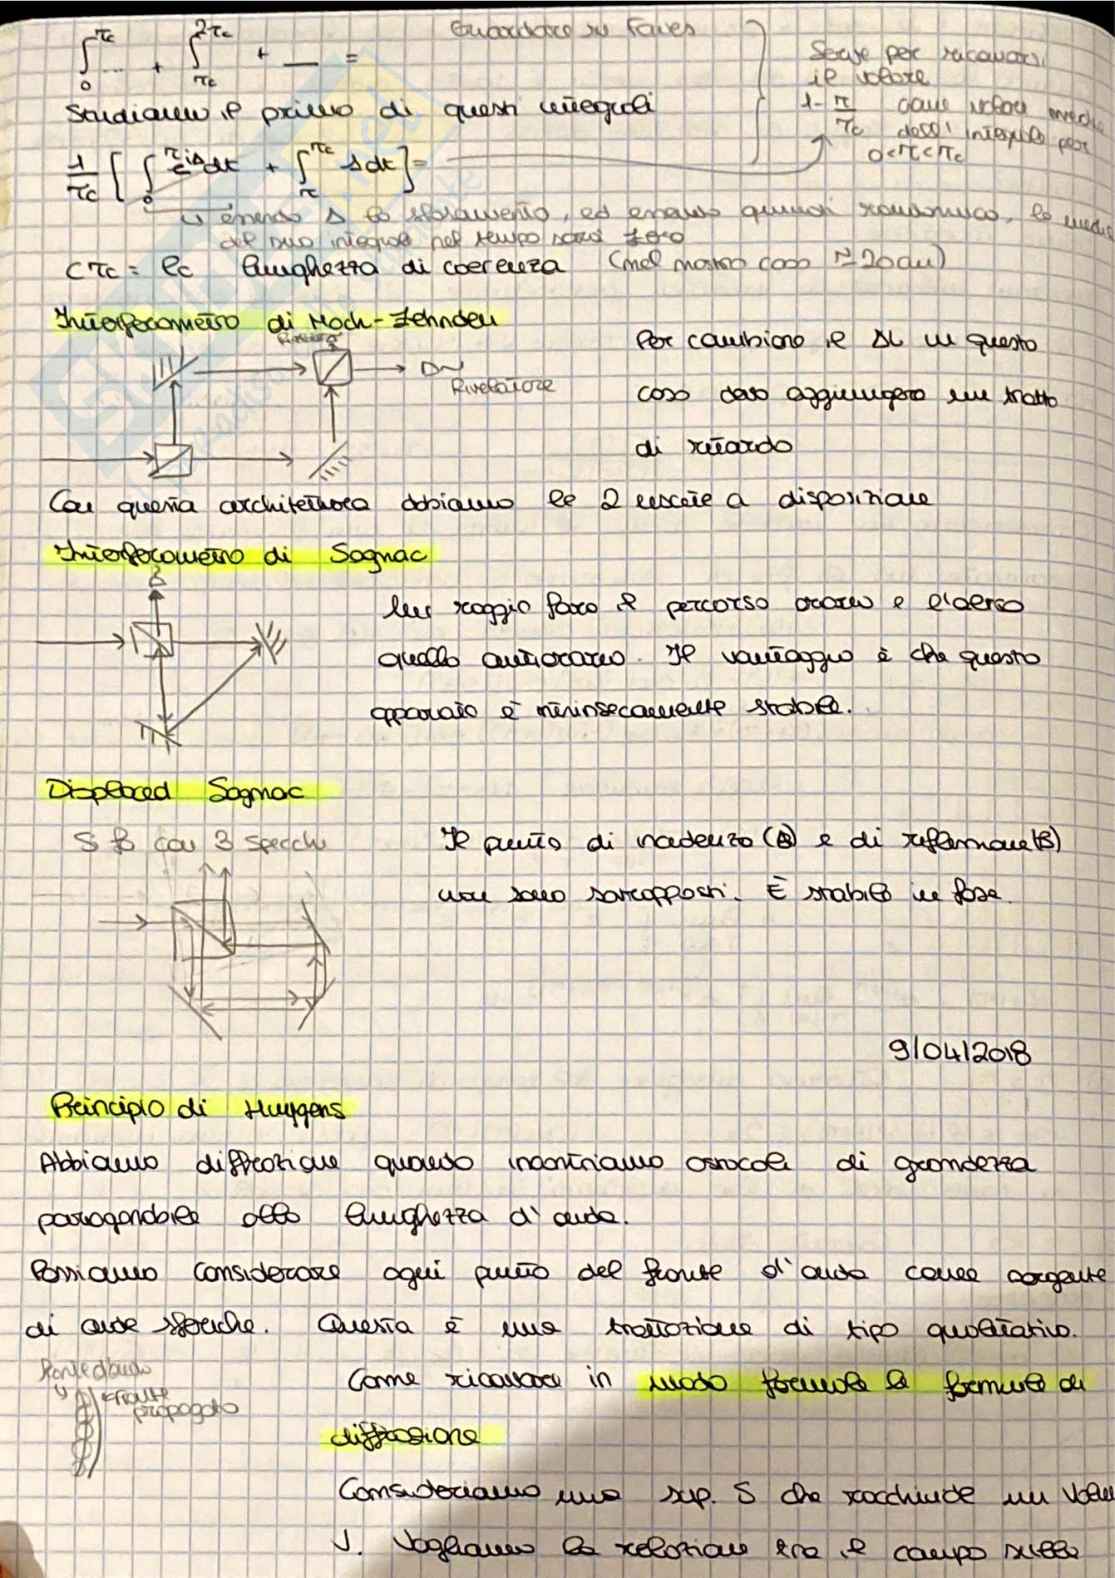 ∫₀^τc ... + ∫_τc^2τc + __ =
Guardare su Fowles
Serve per ricavarsi
il valore
1 - τ/τc come valore medio
dell'integrale per
0<τ<τc
Studiamo il primo di questi integrali
1/τc [ ∫₀^τ e^iΔ dt + ∫_τ^τc Δ dt ] =
essendo Δ lo sfasamento, ed essendo quindi randomico, la media
del suo integrale nel tempo sarà zero
cτc = lc lunghezza di coerenza (nel nostro caso ≃ 20cm)
Interferometro di Mach-Zehnder
Rivelatore
Per cambiare il ΔL in questo
caso devo aggiungere un tratto
di ritardo
Con questa architettura abbiamo le 2 uscite a disposizione
Interferometro di Sagnac
Un raggio farà il percorso orario e l'altro
quello antiorario. Il vantaggio è che questo
apparato è intrinsecamente stabile.
Displaced Sagnac
Si fa con 3 specchi
Il punto di incidenza (A) e di riflessione (B)
non sono sovrapposti. È stabile in fase.
9/04/2018
Principio di Huygens
Abbiamo diffrazione quando incontriamo ostacoli di grandezza
paragonabile alla lunghezza d'onda.
Possiamo considerare ogni punto del fronte d'onda come sorgente
di onde sferiche. Questa è una trattazione di tipo qualitativo.
Fronte d'onda
fronte
propagato
Come ricavare in modo formale la formula di
diffrazione
Consideriamo una sup. S che racchiude un volume
V. Vogliamo la relazione tra il campo sulla